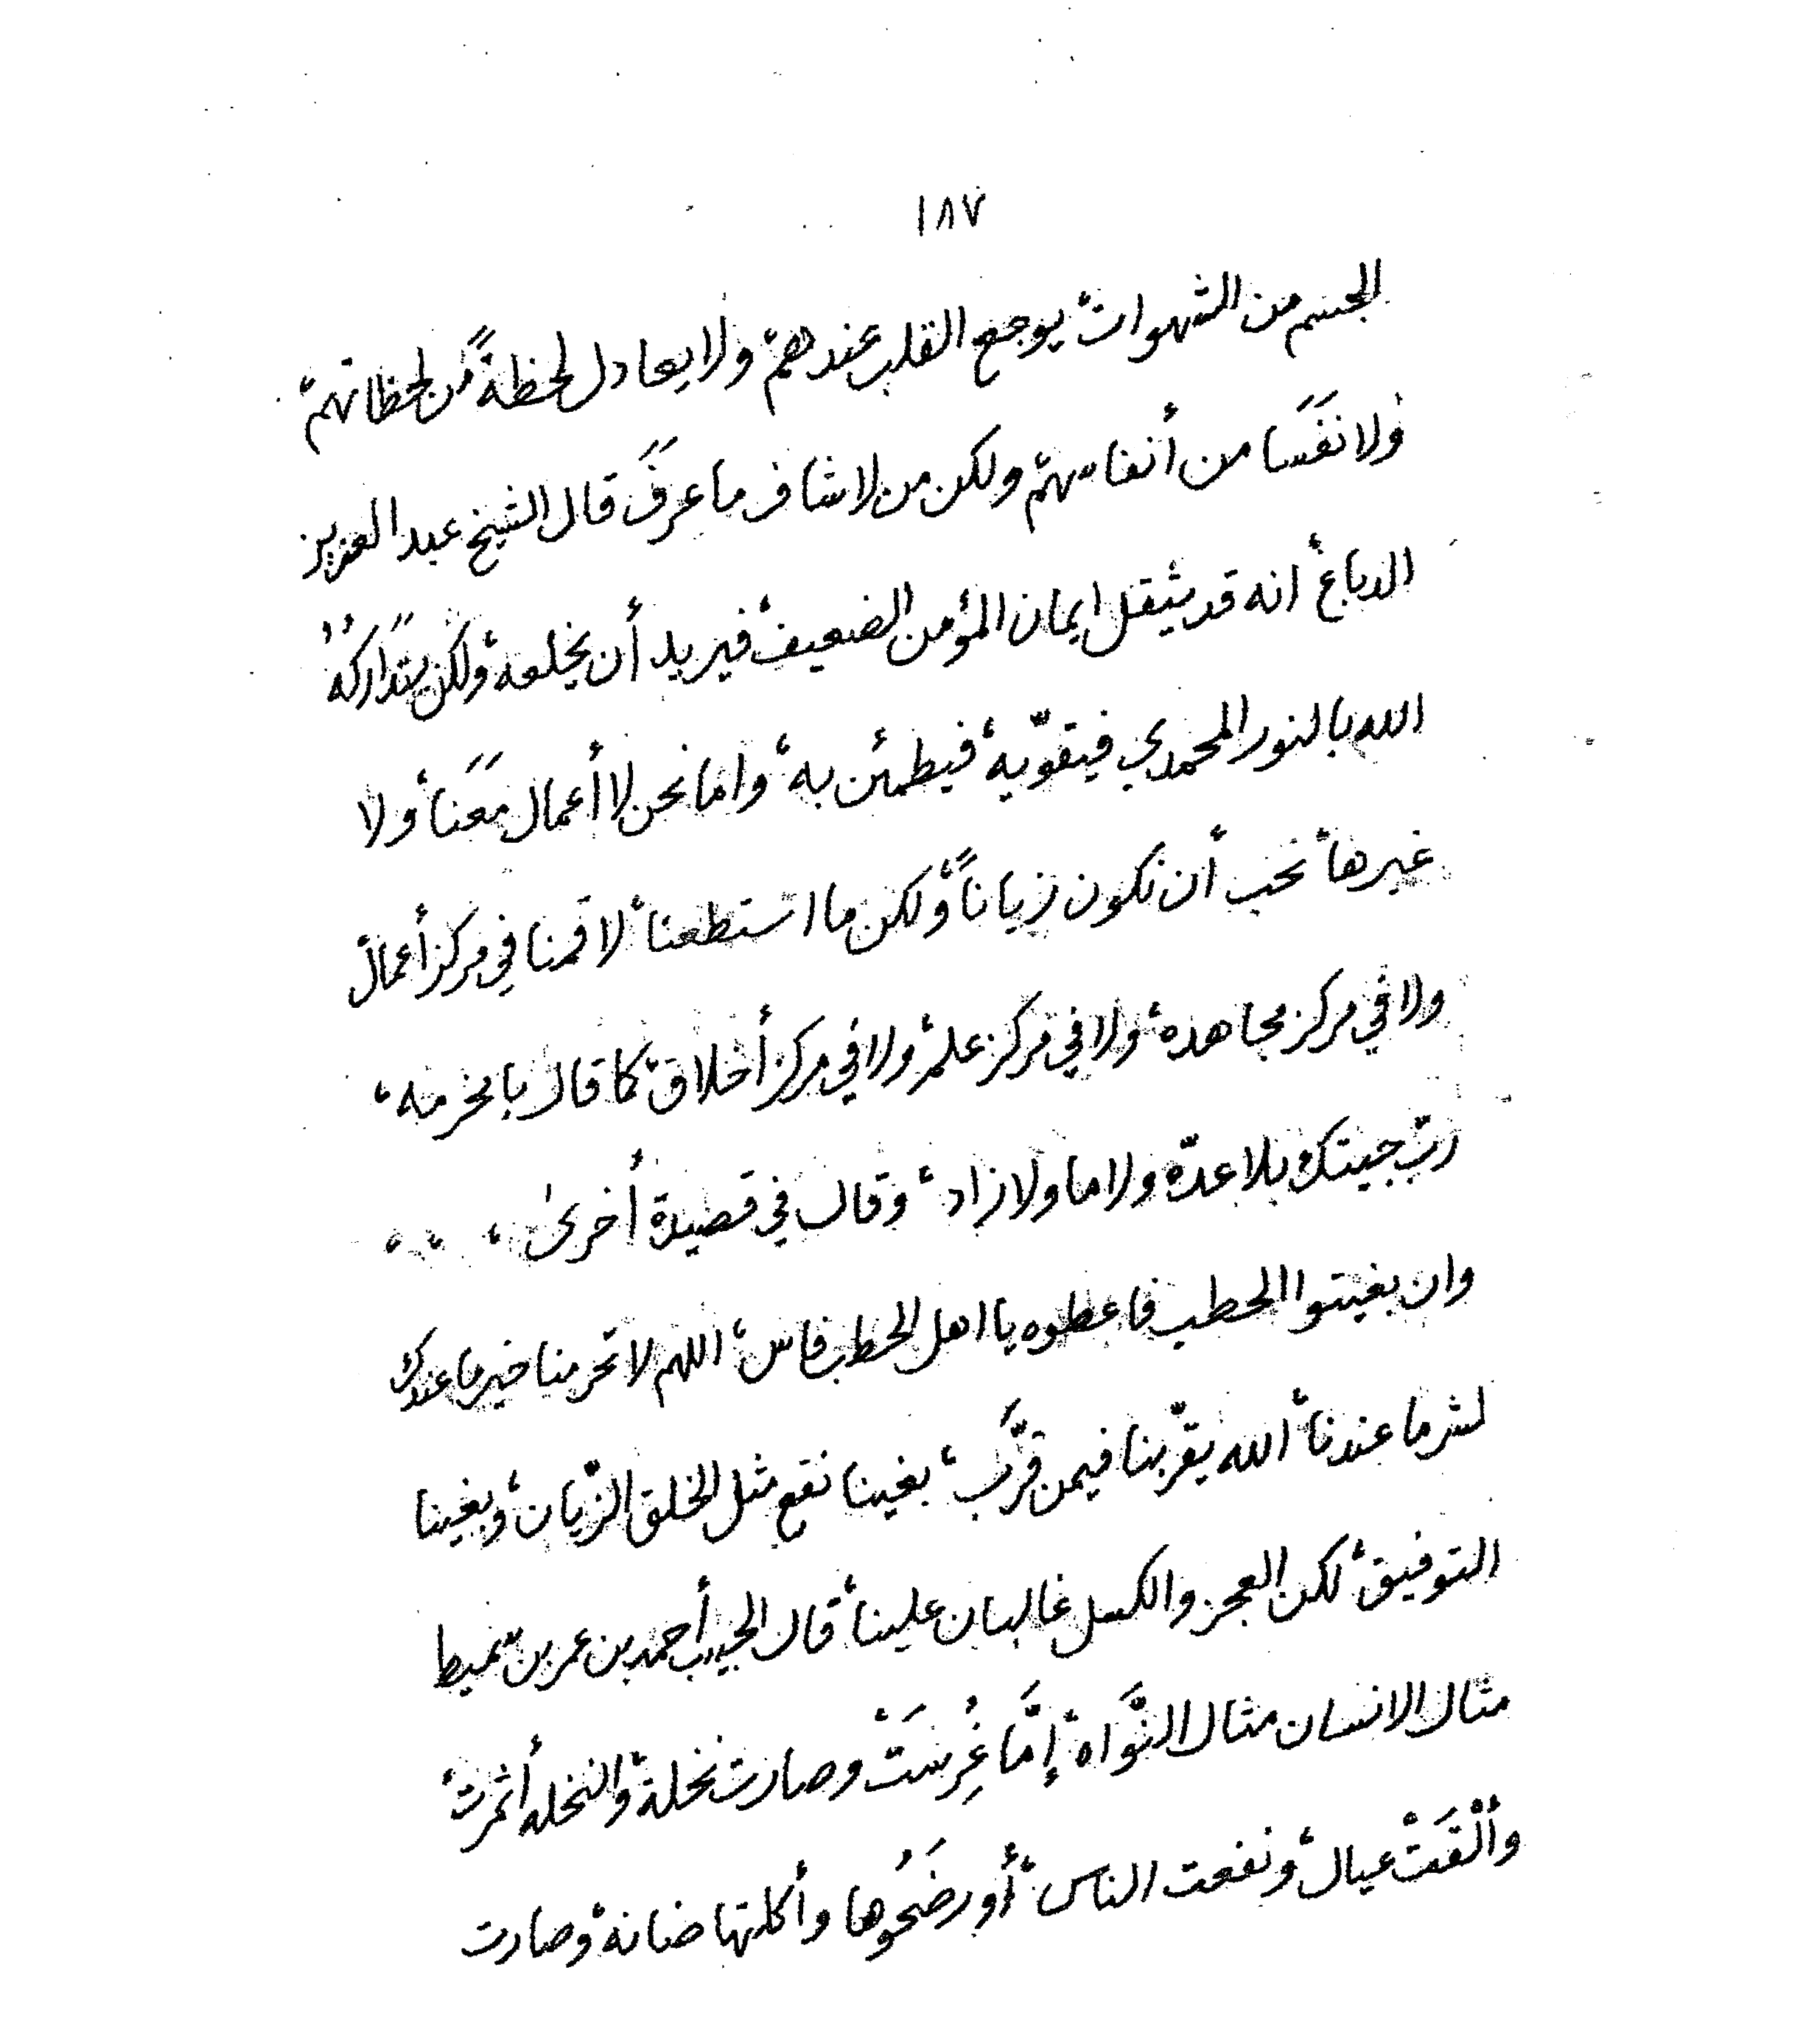 ١٨٧
الجسم من الشهوات، يوجع القلب عندهم، ولا يعادل لحظةً من لحظاتهم،
ولا نَفَسَا من أنفاسهم، ولكن من لا شاف ما عرَفَ، قال الشيخ عبد العزيز
الدباغ، انه قد يثقل ايمان المؤمن الضعيف، فيريد أن يخلعه، ولكن يتداركهُ
الله بالنور المحمدي فيقوّيه، فيطمئن به، واما نحن لا أعمال مَعَنا، ولا
غيرها، نحب أن نكون زياناً، ولكن ما استطعنا، لا قمنا في مركز أعمال،
ولا في مركز مجاهده، ولا في مركز علم، ولا في مركز أخلاق، كما قال بامخرمه،
ربّ جيتك بلا عدّه ولا ما ولا زاد، وقال في قصيدة أخرى، ، ، ،
وان بغيتوا الحطب فاعطوه يا اهل الحطب فاس، اللهم لا تحرمنا خير ما عندك
لشر ما عندنا، الله يقرّبنا فيمن قرَّب، بغينا نقع مثل الخلق الزّيان، وبغينا
التوفيق، لكن العجز والكسل غالبان علينا، قال الحبيب أحمد بن عمر بن سميط
مثال الانسان مثال النَّواه، إمَّا غُرِسَتْ وصارت نخلة، والنخله أثمرت،
وألْقَتْ عيال، ونفعت الناس، أو رضَحُوها وأكلتها ضانة، وصارت